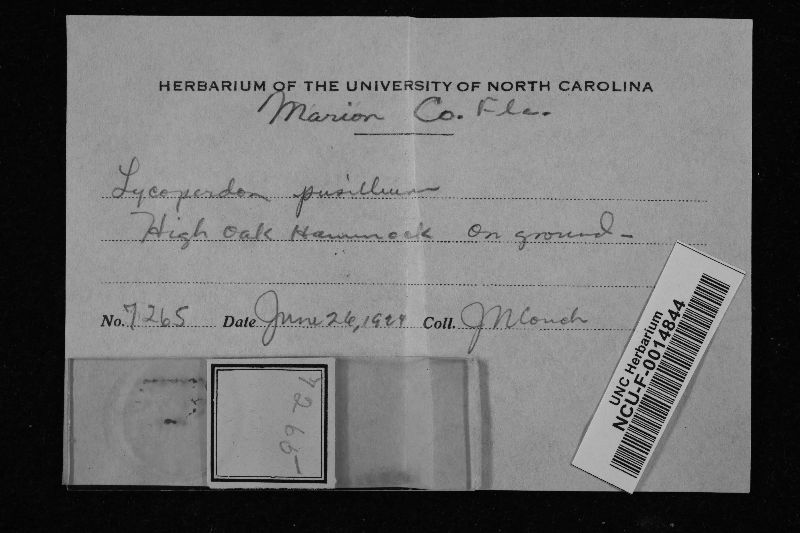 HERBARIUM OF THE UNIVERSITY OF NORTH CAROLINA
Marion Co. Fla.
Lycoperdon pusillum
High Oak Hammock On ground -
No. 7265 Date June 26, Coll. J N Couch
UNC Herbarium
NCU-F-0014844